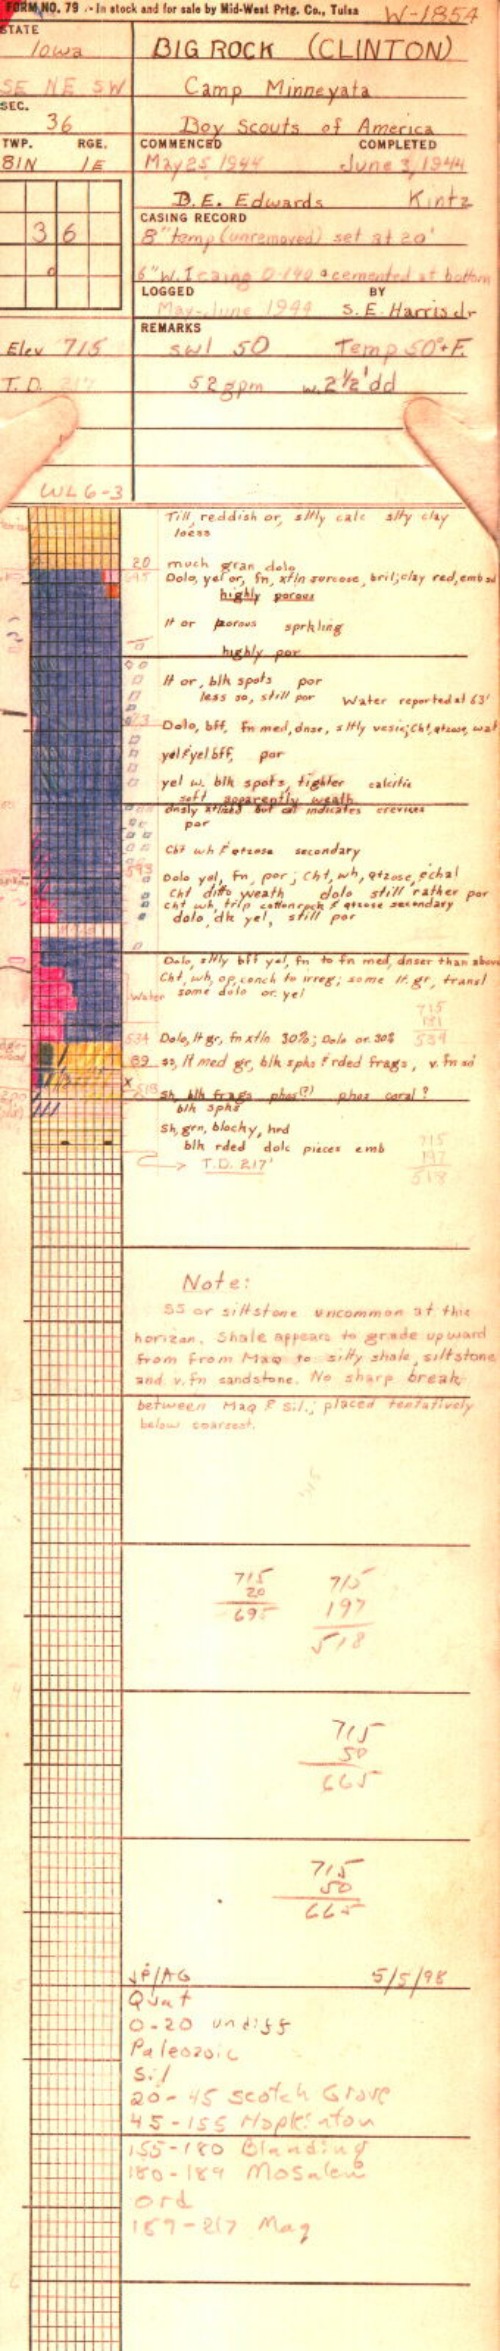 FORM NO. 79 - In stock and for sale by Mid-West Prtg. Co., Tulsa
W-1854
STATE
Iowa
BIG ROCK (CLINTON)
SE NE SW
Camp Minneyata
SEC.
36
Boy Scouts of America
TWP. RGE.
81N 1E
COMMENCED COMPLETED
May 25, 1944 June 3, 1944
D. E. Edwards Kintz
CASING RECORD
36
8" temp (unremoved) set at 20'
6" W.I casing 0-190 cemented at bottom
LOGGED BY
May-June 1944 S. E. Harris Jr
REMARKS
Elev 715
swl 50 Temp 50°+F.
T. D. 217
52 gpm w. 2½' dd
WL 6-3
Till, reddish or, sltly calc slty clay
loess
20 much gran dolo
695 Dolo, yel or, fn, xtln surcose, bril; clay red, emb sd
highly porous
lt or porous sprkling
highly por
lt or, blk spots por
less so, still por Water reported at 63'
Dolo, bff, fn med, dnse, sltly vesic; Cht, qtzose, wat
yel & yel bff, por
yel w. blk spots, tighter calcitic
soft apparently weath
dnsly xtlized but cal indicates crevices
por
Cht wh & qtzose secondary
593 Dolo yel, fn, por; Cht, wh, qtzose, & chal
Cht ditto weath dolo still rather por
cht wh, trip cottonrock & qtzose secondary
dolo, dk yel, still por
Dolo, sltly bff yel, fn to fn med, dnser than above
Cht, wh, op, conch to irreg; some lt. gr, transl
Water some dolo or. yel
715
181
534
534 Dolo, lt gr, fn xtln 30%; Dolo or 30%
89 ss, lt med gr, blk sphs & rded frags, v. fn sd
x 518 sh, blk frags phos(?) phos coral?
blk sphs
Sh, grn, blocky, hrd
blk rded dolc pieces emb
T.D. 217'
715
197
518
Note:
SS or siltstone uncommon at this
horizan. Shale appears to grade upward
from from Maq to silty shale, siltstone
and v. fn sandstone. No sharp break
between Maq & Sil.; placed tentatively
below coarsest.
715 715
20 197
695 518
715
50
665
715
50
665
JP/AG 5/5/98
Quat
0-20 undiff
Paleozoic
Sil
20-45 Scotch Grove
45-155 Hopkinton
155-180 Blanding
180-189 Mosalem
Ord
189-217 Maq